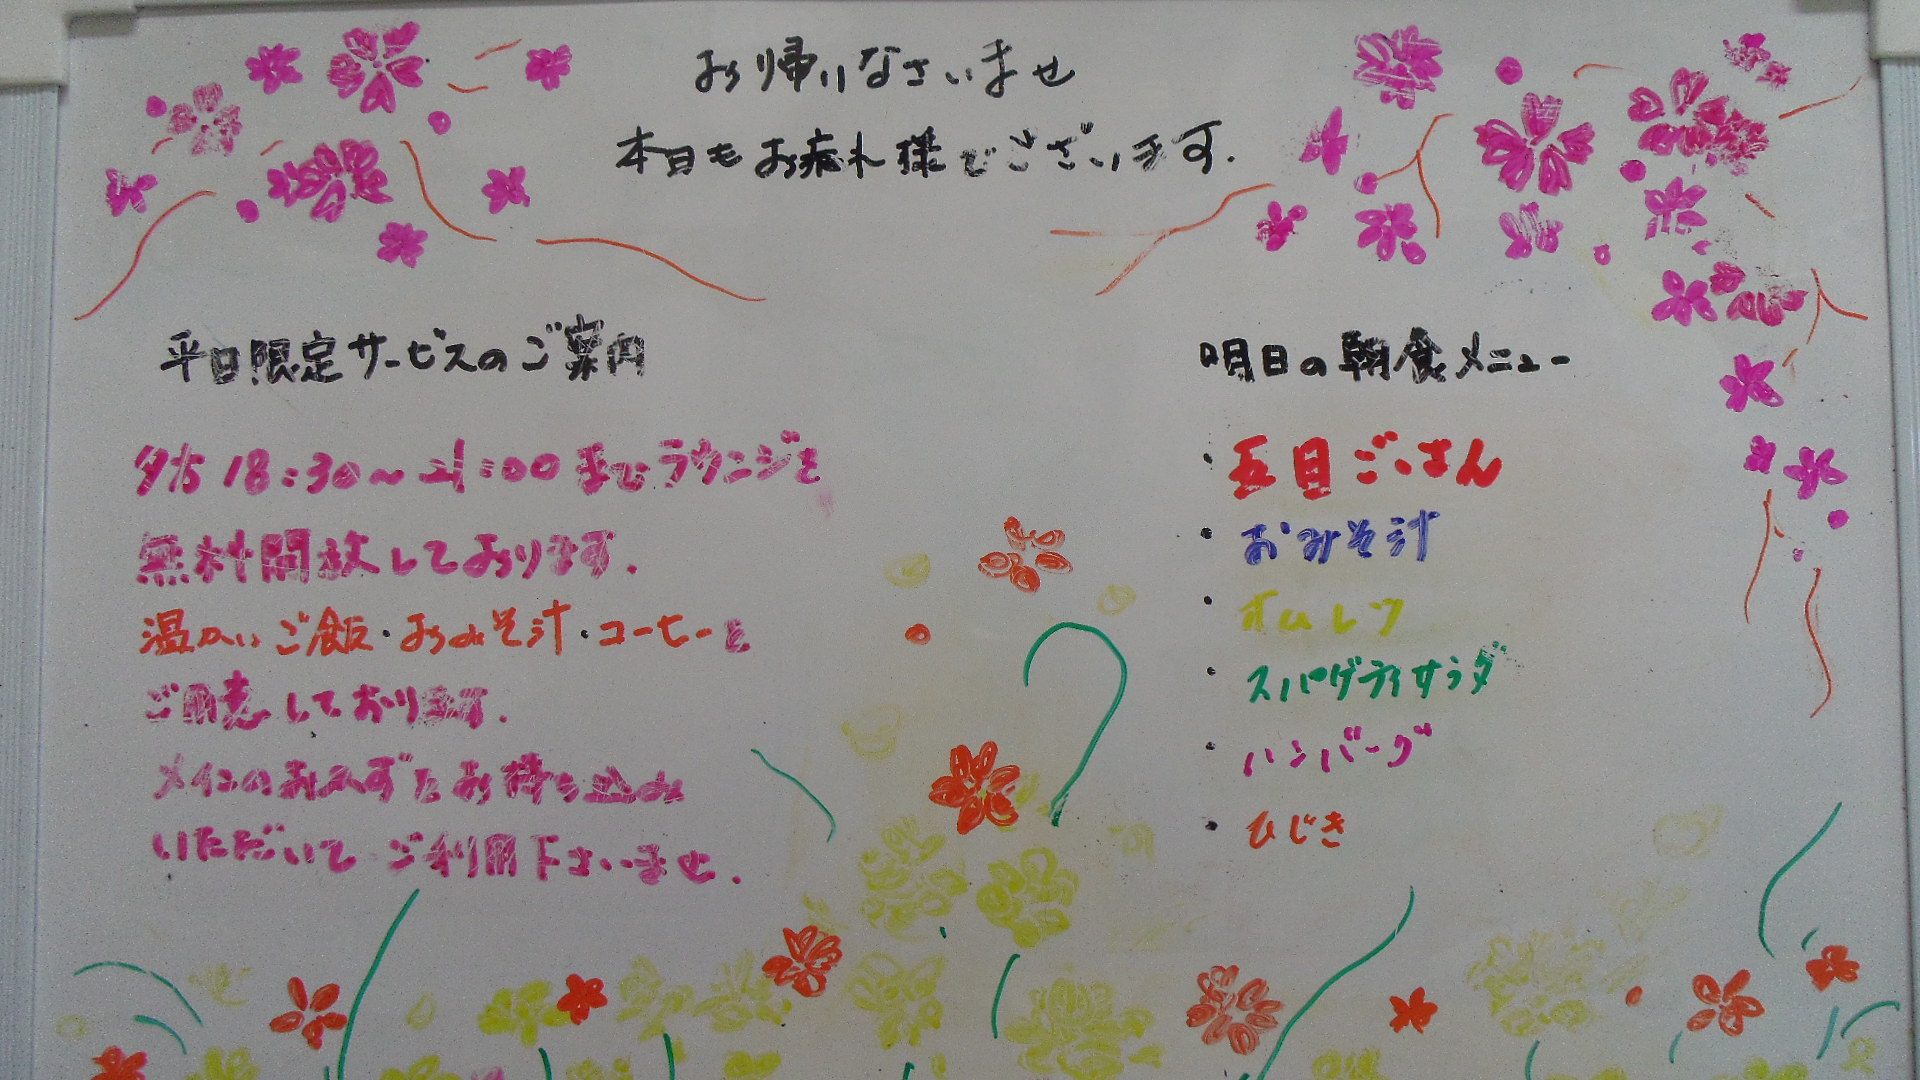 お帰りなさいませ
本日もお疲れ様でございます.
平日限定サービスのご案内
夕方18:30～21:00までラウンジを
無料開放しております.
温かいご飯・おみそ汁・コーヒーを
ご用意しております.
メインのおかずをお持ち込み
いただいてご利用下さいませ.
明日の朝食メニュー
・五目ごはん
・おみそ汁
・オムレツ
・スパゲティサラダ
・ハンバーグ
・ひじき